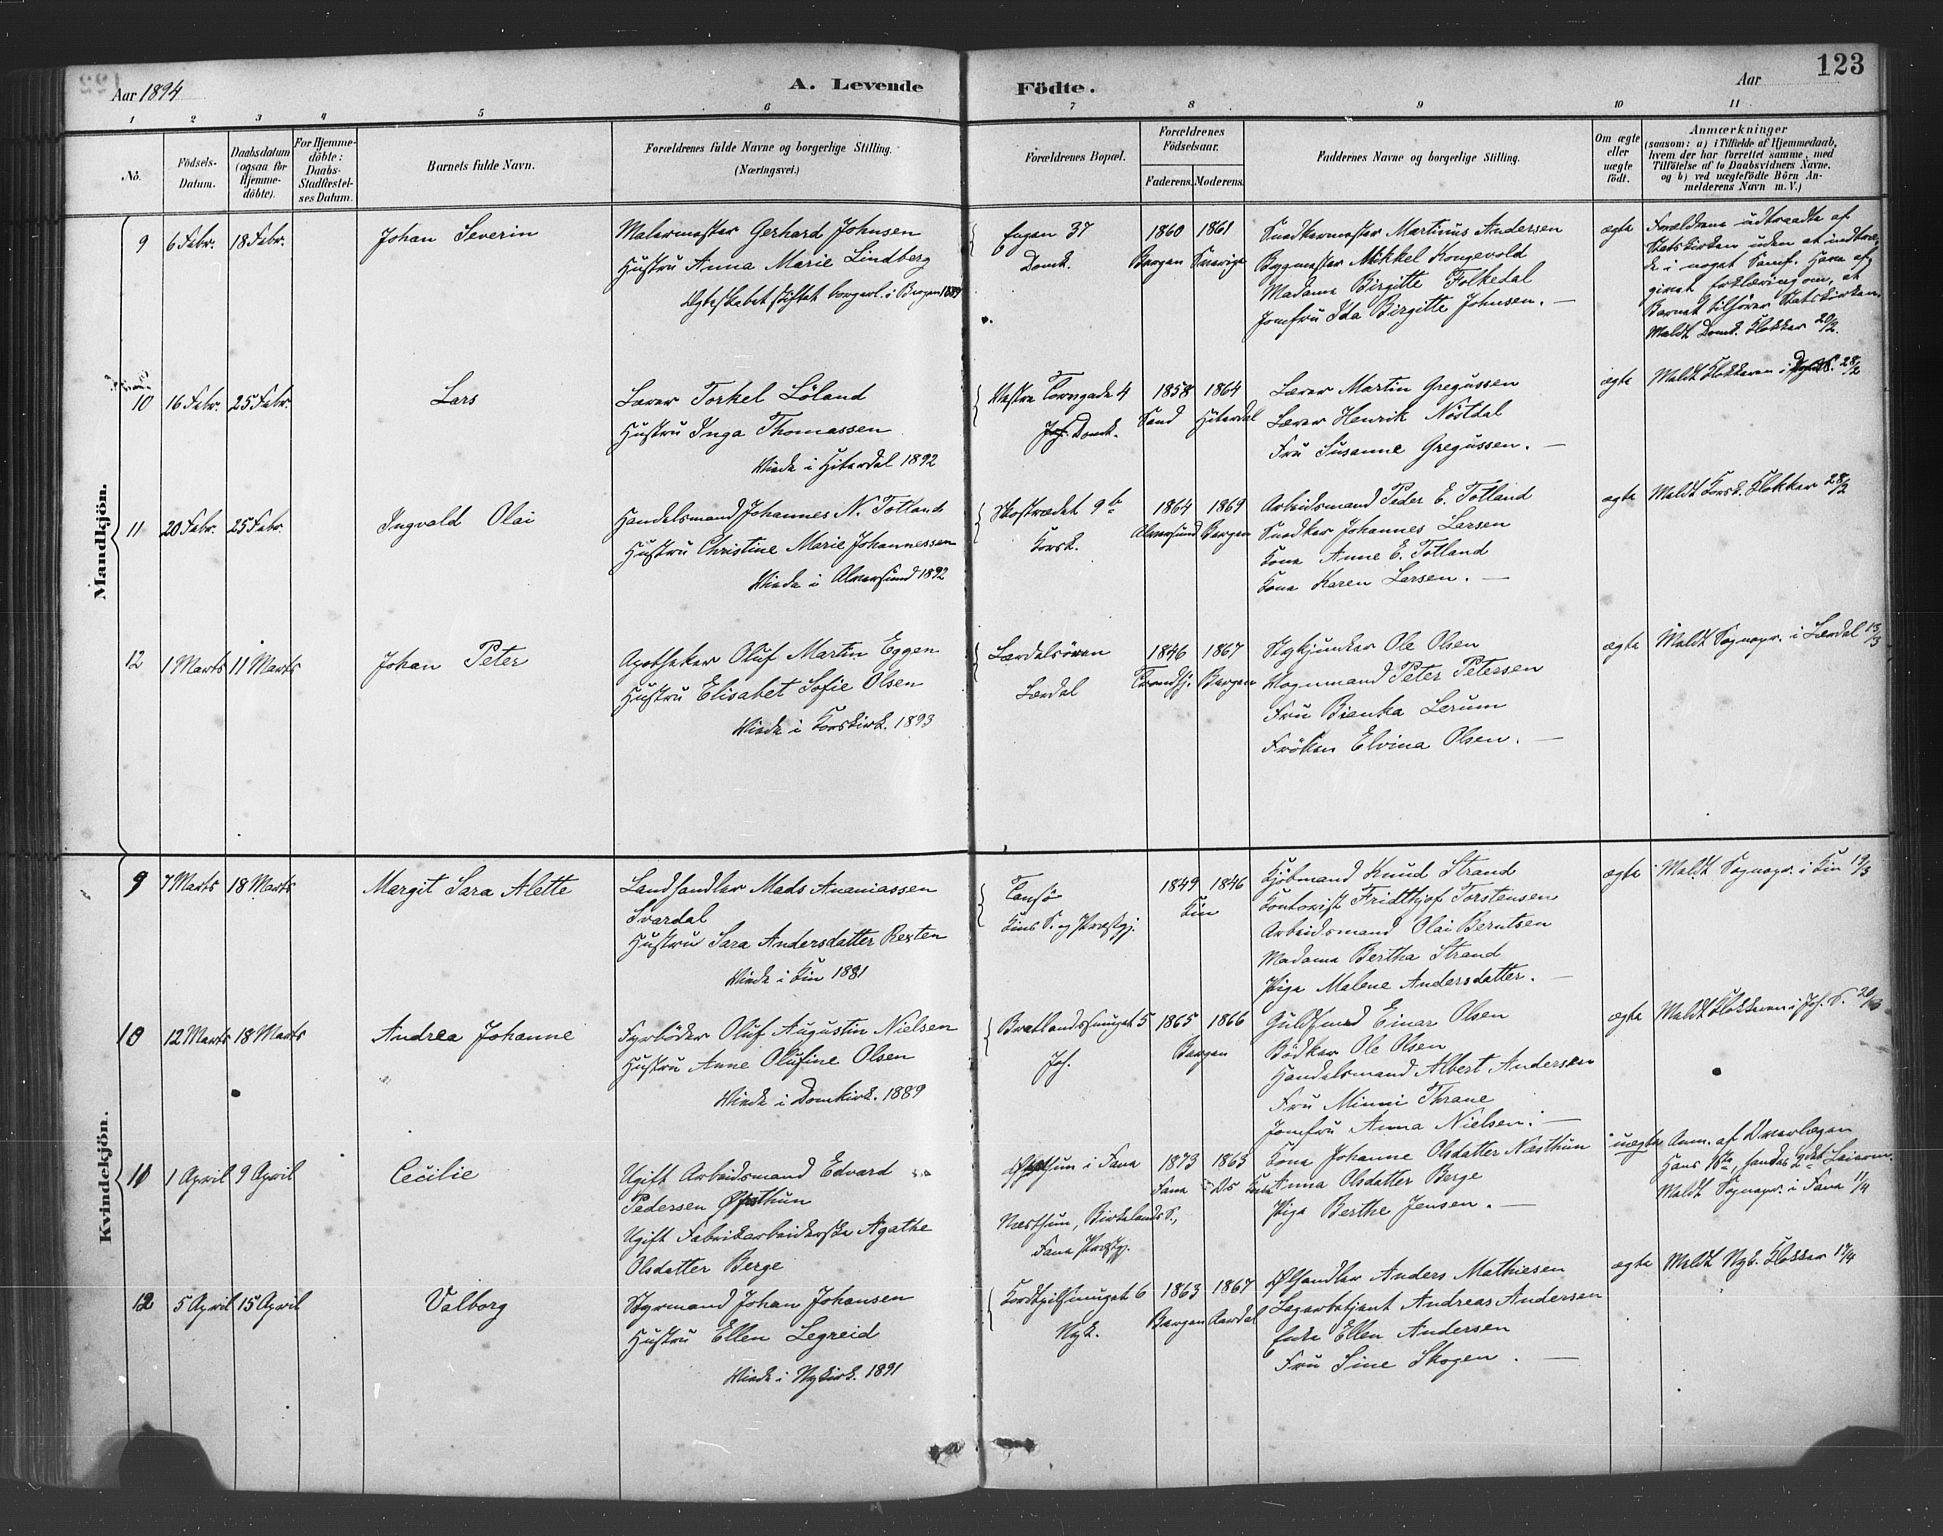 Aar 1894
A. Levende
Födte.
Aar
123
1 2 3 4 5 6 7 8 9 10 11
No.
Födsels-Datum.
Daabsdatum (ogsaa for Hjemme-döbte).
For Hjemme-döbte: Daabs-Stadfæstel-ses Datum.
Barnets fulde Navn.
Forældrenes fulde Navne og borgerlige Stilling. (Næringsvei.)
Forældrenes Bopæl.
Forældrenes Födselsaar.
Faderens. Moderens.
Faddernes Navne og borgerlige Stilling.
Om ægte eller uægte födt.
Anmærkninger
(saasom: a) i Tilfælde af Hjemmedaab,
hvem der har forrettet samme, med
Tilföielse af to Daabsvidners Navne.
og b) ved uægtefödte Börn An-
melderens Navn m. V.)
Mandkjön.
9 6 Febr. 18 Febr. Johan Severin
Malermester Gerhard Johnsen
Hustru Anna Marie Lindberg
Ægteskabet stiftet borgerl. i Bergen 1889
Engen 37
Domk.
1860 1861
Bergen Sverige
Snedkermester Martinus Andersen
Bygmester Mikkel Kongevold
Madame Birgitte Folkedal
Jomfru Ida Birgitte Johnsen. —
ægte
Forældrene udtraadte af
Statskirken uden at indtræ-
de i noget Samf. Have af
givet erklæring om, at
Barnet tilhører Statskirken.
Meldt Domk. Klokker 20/2.
10 16 Febr. 25 Febr. Lars
Lærer Torkel Löland
Hustru Inga Thomassen
Viede i Hiterdal 1892
Vestre Torvgade 4
Domk.
1858 1864
Sand Hiterdal
Lærer Martin Gregussen
Lærer Henrik Nöstdal
Fru Susanne Gregussen. —
ægte
Meldt Klokkeren i 28/2
11 20 Febr. 25 Febr. Ingvald Olai
Handelsmand Johannes N. Totland
Hustru Christine Marie Johannessen
Viede i Alversund 1892
Skostrædet 9 b
Korsk.
1864 1869
Alversund Bergen
Arbeidsmand Peder E. Totland
Snedker Johannes Larsen
Kone Anne E. Totland
Kone Karen Larsen. —
ægte
Meldt Korsk. Klokker 28/2
12 1 Marts 11 Marts Johan Peter
Apotheker Oluf Martin Eggen
Hustru Elisabet Sofie Olsen
Viede i Korskirk. 1893
Lærdalsören
Lærdal
1846 1867
Trondhj. Bergen
Ole Olsen
Vognmand Peter Petersen
Fru Bienka Lerum
Fröken Elvina Olsen. —
ægte
Meldt Sognepr. i Lærdal 13/3
Kvindekjön.
9 7 Marts 18 Marts Margit Sara Alette
Landhandler Mads Ananiassen
Svardal
Hustru Sara Andersdatter Rexten
Viede i Kin 1881
Tansö
Kins S. og Præstgj.
1849 1846
Kin
Kjöbmand Knud Strand
Kontorist Fridthjof Torstensen
Arbeidsmand Olai Berntsen
Madame Bertha Strand
Pige Malene Andersdatter. —
ægte
Meldt Sognepr. i Kin 19/3
10 12 Marts 18 Marts Andrea Johanne
Fyrböder Oluf Augustin Nielsen
Hustru Anne Olufine Olsen
Viede i Domkirk. 1889
Bratlandssmuget 5
Joh.
1865 1866
Bergen
Guldsmed Einar Olsen
Bödker Ole Olsen
Handelsmand Albert Andersen
Fru Minni Thrane
Jomfru Anna Nielsen. —
ægte
Meldt Klokkeren i Joh. S. 20/3
11 1 April 9 April Cecilie
Ugift Arbeidsmand Edvard
Pedersen Øfsthun
Ugift Fabrikarbeiderske Agathe
Olsdatter Berge
Øfsthun i Fana
Næsthun, Birkelands S.,
Fana Præstgj.
1873 1863
Fana Ds
Kone Johanne Olsdatter Næsthun
Kone Anna Olsdatter Berge
Pige Berthe Jensen. —
uægte
Anm. af Overlægen
Hans 1ste, hendes 2det Leierm.
Meldt Sognepr. i Fana 11/4
12 5 April 15 April Valborg
Styrmand Johan Johansen
Hustru Ellen Legreid
Viede i Nykirk. 1891
6
Nyk.
1863 1867
Bergen Aardal
Ølhandler Anders Mathiesen
Lagerbetjent Andreas Andersen
Enke Ellen Andersen
Fru Sine Skogen. —
ægte
Meldt Nyk. Klokker 17/4